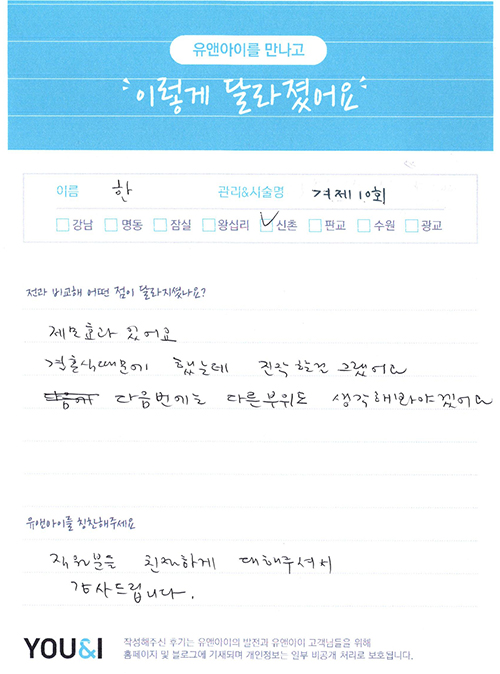 유앤아이를 만나고
이렇게 달라졌어요
이름 한 관리&시술명 겨제10회
강남 명동 잠실 왕십리 신촌 판교 수원 광교
전과 비교해 어떤 점이 달라지셨나요?
제모효과 있어요
결혼식때문에 했는데 진작 할걸 그랬어요
다음에 다음번에는 다른부위도 생각해봐야겠어요
유앤아이를 칭찬해주세요
직원분들 친절하게 대해주셔서
감사드립니다.
YOU&I 작성해주신 후기는 유앤아이의 발전과 유앤아이 고객님들을 위해
홈페이지 및 블로그에 기재되며 개인정보는 일부 비공개 처리로 보호됩니다.